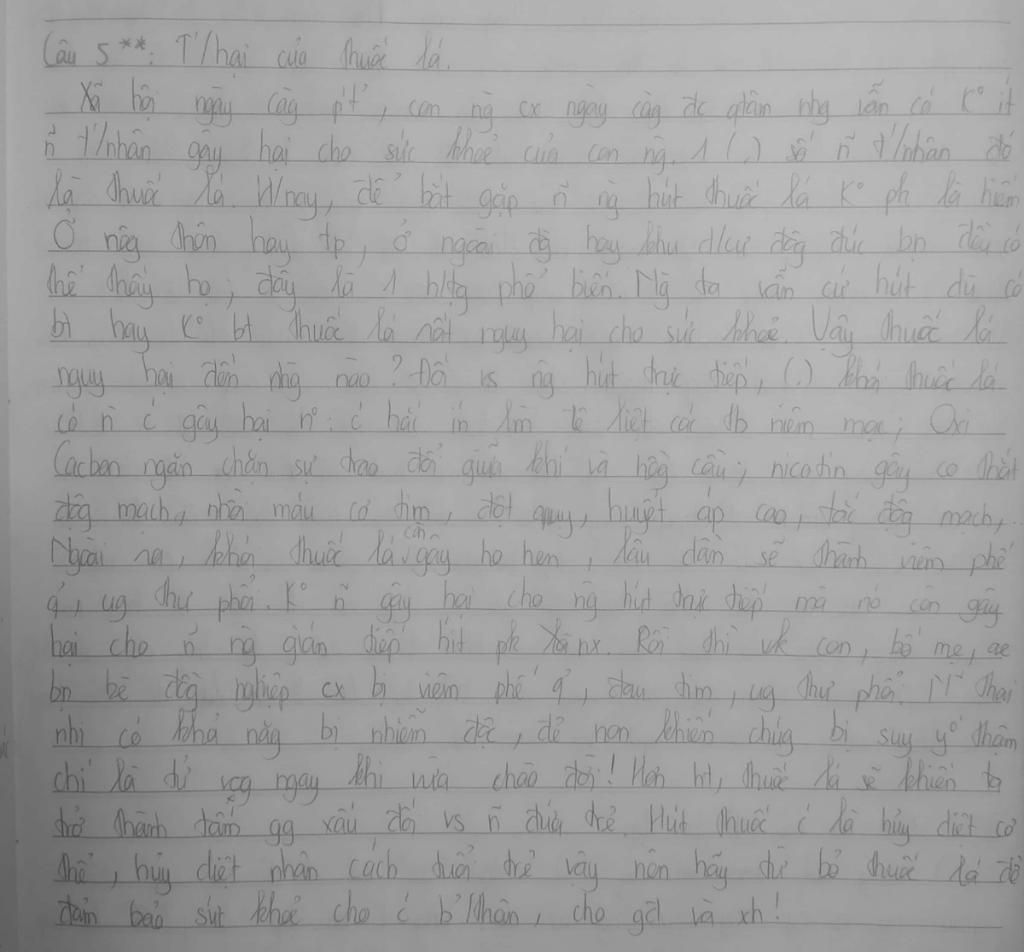 Câu 5**: T'/hại của thuốc lá.
Xã hội ngày càg p't', con ng cx ngày càg đc qtâm nhg vẫn có K° ít
ñ t'/nhân gây hại cho sức khoẻ của con ng. 1 (.) số ñ t'/nhân đó
là thuốc lá. H/nay, để bắt gặp ñ ng hút thuốc lá K° ph là hiếm
Ở nôg thôn hay tp, ở ngoài đg hay khu d/cư đôg đúc bn đều có
thể thấy họ; đây là 1 h/tg phổ biến. Ng ta vẫn cứ hút dù có
bt hay K° bt thuốc lá rất nguy hại cho sức khoẻ. Vậy thuốc lá
nguy hại đến nhg nào? Đối vs ng hút trực tiếp, (.) khói thuốc lá
có ñ c' gây hại n°: c' hắc ín làm tê liệt các tb niêm mạc; Oxi
Cacbon ngăn chặn sự trao đổi giữa khí và hồg cầu; nicotin gây co thắt
độg mạch, nhồi máu cơ tim, đột quỵ, huyết áp cao, tắc độg mạch,...
Ngoài ra, khói thuốc lá còn gây ho hen, lâu dần sẽ thành viêm phế
q', ug thư phổi. K° ñ gây hại cho ng hút trực tiếp mà nó còn gây
hại cho ñ ng gián tiếp hít ph nx. Rồi thì vk con, bố mẹ, ae
bn bè đồg nghiệp cx bị viêm phế q', đau tim, ug thư phổi. thai
nhi có khả năg bị nhiễm độc, đẻ non khiến chúg bị suy y° thậm
chí là tử vog ngay khi vừa chào đời! Hơn hết, thuốc lá sẽ khiến ta
trở thành tấm gg xấu đối vs ñ đứa trẻ. Hút thuốc c' là hủy diệt cơ
thể, hủy diệt nhân cách tuổi trẻ vậy nên hãy từ bỏ thuốc lá để
đảm bảo sức khoẻ cho c' b'/thân, cho gđ và xh!